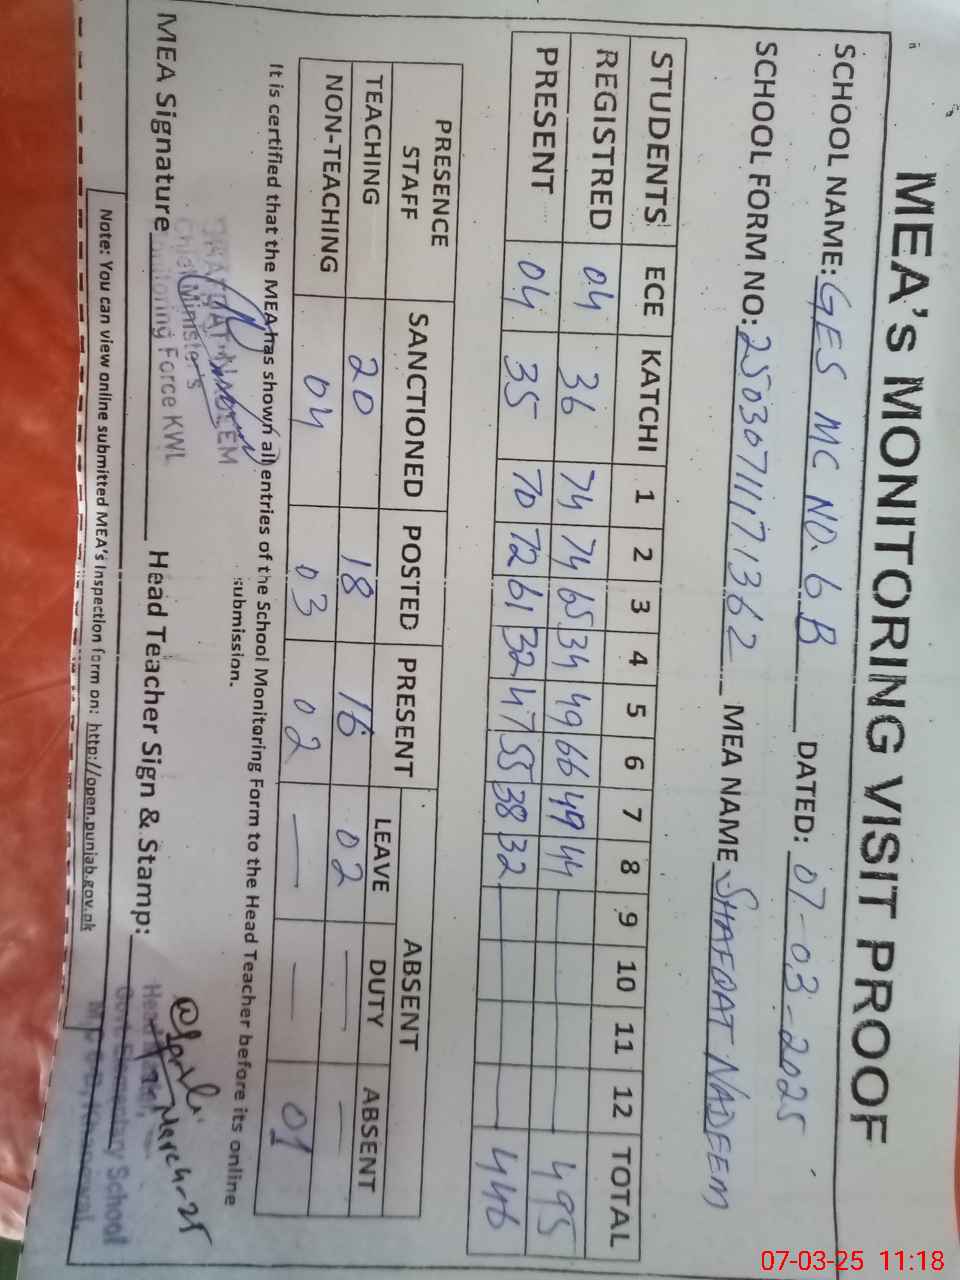 MEA'S MONITORING VISIT PROOF
SCHOOL NAME: GES MC NO. 6B DATED: 07-03-2025
SCHOOL FORM NO: 25030711171362 MEA NAME SHAFQAT NADEEM
STUDENTS ECE KATCHI 1 2 3 4 5 6 7 8 9 10 11 12 TOTAL
REGISTRED 04 36 74 74 65 34 49 66 49 44 495
PRESENT 04 35 70 72 61 32 47 55 38 32 446
PRESENCE STAFF SANCTIONED POSTED PRESENT ABSENT
LEAVE DUTY ABSENT
TEACHING 20 18 16 02 — —
NON-TEACHING 04 03 02 — — 01
It is certified that the MEA has shown all entries of the School Monitoring Form to the Head Teacher before its online
submission.
MEA Signature Head Teacher Sign & Stamp:
NADEEM
Chief Minister's
Monitoring Force KWL
March-25
Govt. Elementary School
Khanewal.
Note: You can view online submitted MEA's Inspection form on: http://open.punjab.gov.pk
07-03-25 11:18